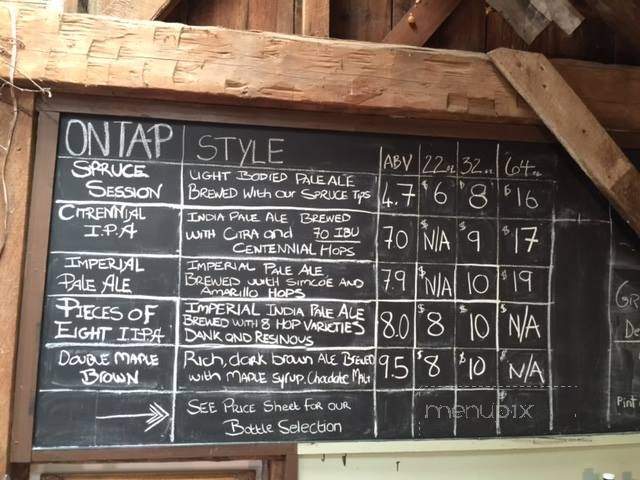 ON TAP STYLE ABV 22oz 32oz 64oz
SPRUCE LIGHT BODIED PALE ALE
SESSION BREWED WITH OUR SPRUCE TIPS 4.7 $6 $8 $16
CITRENNIAL INDIA PALE ALE BREWED
I.P.A WITH CITRA AND 70 IBU 7.0 $N/A $9 $17
CENTENNIAL HOPS
IMPERIAL IMPERIAL PALE ALE
PALE ALE BREWED WITH SIMCOE AND 7.9 $N/A 10 $19
AMARILLO HOPS
PIECES OF IMPERIAL INDIA PALE ALE
EIGHT I.I.P.A BREWED WITH 8 HOP VARIETIES 8.0 $8 $10 $N/A
DANK AND RESINOUS
DOUBLE MAPLE Rich, dark brown ALE BREWED
BROWN with MAPLE syrup, Chocolate Malt 9.5 $8 $10 $N/A
SEE PRICE SHEET FOR OUR
Bottle Selection
menupix
Pint